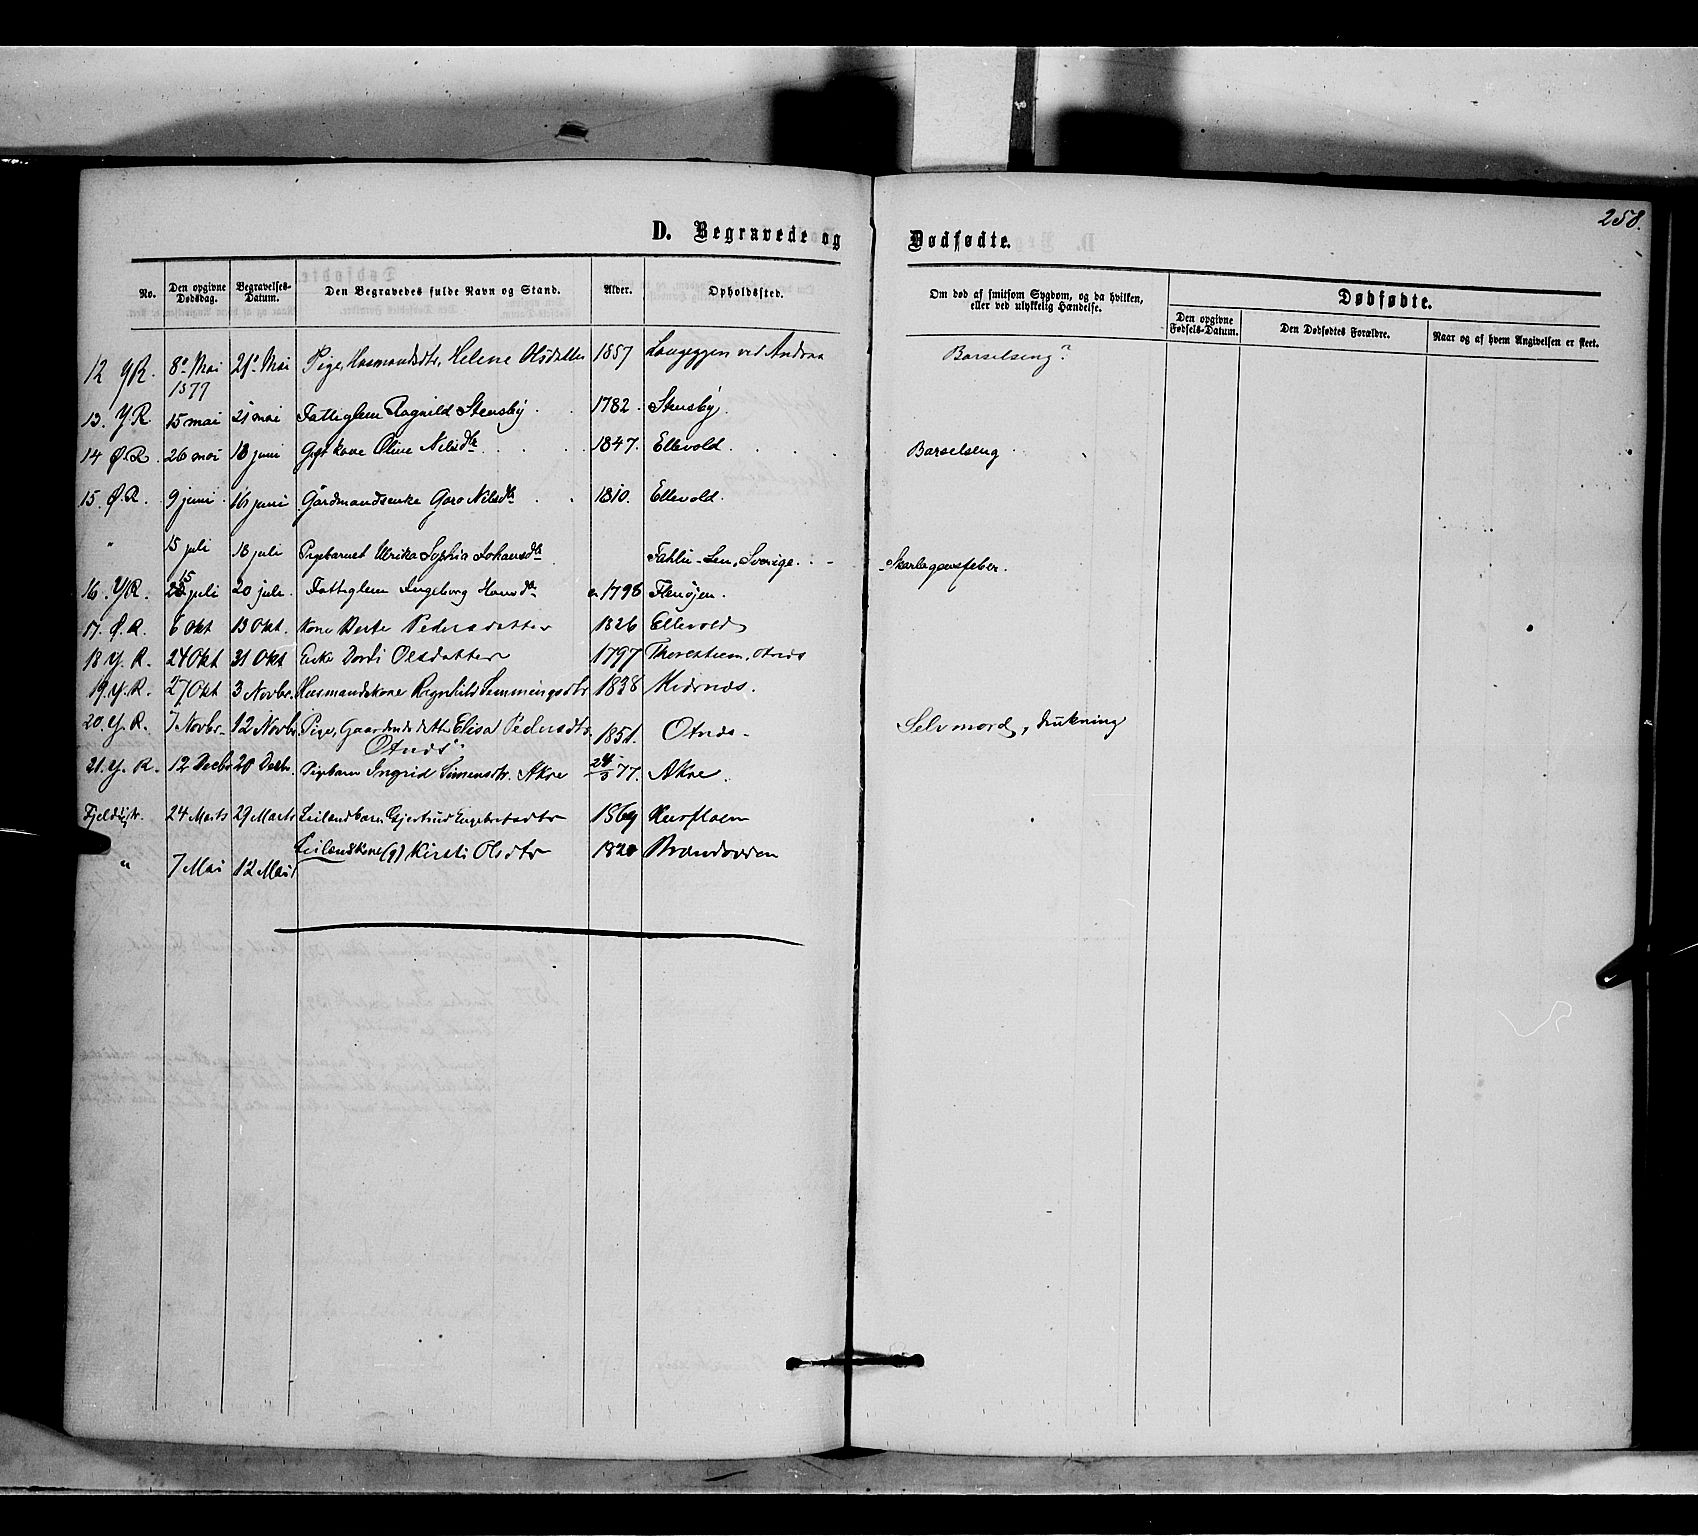 258.
D. Begravede og Dødfødte.
No. Den opgivne Dødsdag. Begravelses-Datum. Den Begravedes fulde Navn og Stand. Alder. Opholdssted. Om død af smitsom Sygdom, og da hvilken, eller ved ulykkelig Hændelse. Dødfødte.
Den opgivne Fødsels-Datum. Den Dødfødtes Forældre. Naar og af hvem Angivelsen er skeet.
12 YR. 8de Mai 21de Mai Pige, Husmandsdtr, Helene Olsdatter 1857 ved Andraa Barselseng?
1877
13. Y.R. 15 mai 21 mai Fattiglem Ragnild Stensby. 1782. Stensby.
14 Ø.R. 26 mai 18 juni Gift kone Oline Nilsdtr 1847. Ellevold. Barselseng
15. Ø.R. 9 juni 16 juni Gårdmandsenke Goro Nilsdtr 1810. Ellevold.
" 15 juli 18 juli Pigebarnet Ulrika Sophia Johansdtr Fahlu-Len, Sverige. Skarlagensfeber.
16. Y.R. 15 juli 20 juli. Fattiglem Ingeborg Hansdtr 1798 Flenøjen.
17. Ø.R. 6 Okt 13 Okt. Kone Berte Pedersdatter 1826 Ellevold
18 Y.R. 24 Okt 31 Okt Enke Dordi Olsdatter 1797 Otnes
19. Y.R. 27 Okt 3 Novbr. Husmandskone Ragnhild Simmingsdtr 1838 Midtnes.
20. Y.R. 7 Novbr. 12 Novbr Pige, Elisa Pedersdtr. 1851. Otnes. Selvmord, drukning
Otnes
21. Y.R. 12 Decbr 20 Decbr. Pigebarn Ingrid Simensdtr. Akre 24/3 77. Akre.
24 Marts 29 Marts Leilendbarn Gjertrud Engebretsdtr 1869
" 7 Mai 12 Mai Leilendkone (g) Kirsti Olsdtr 1820